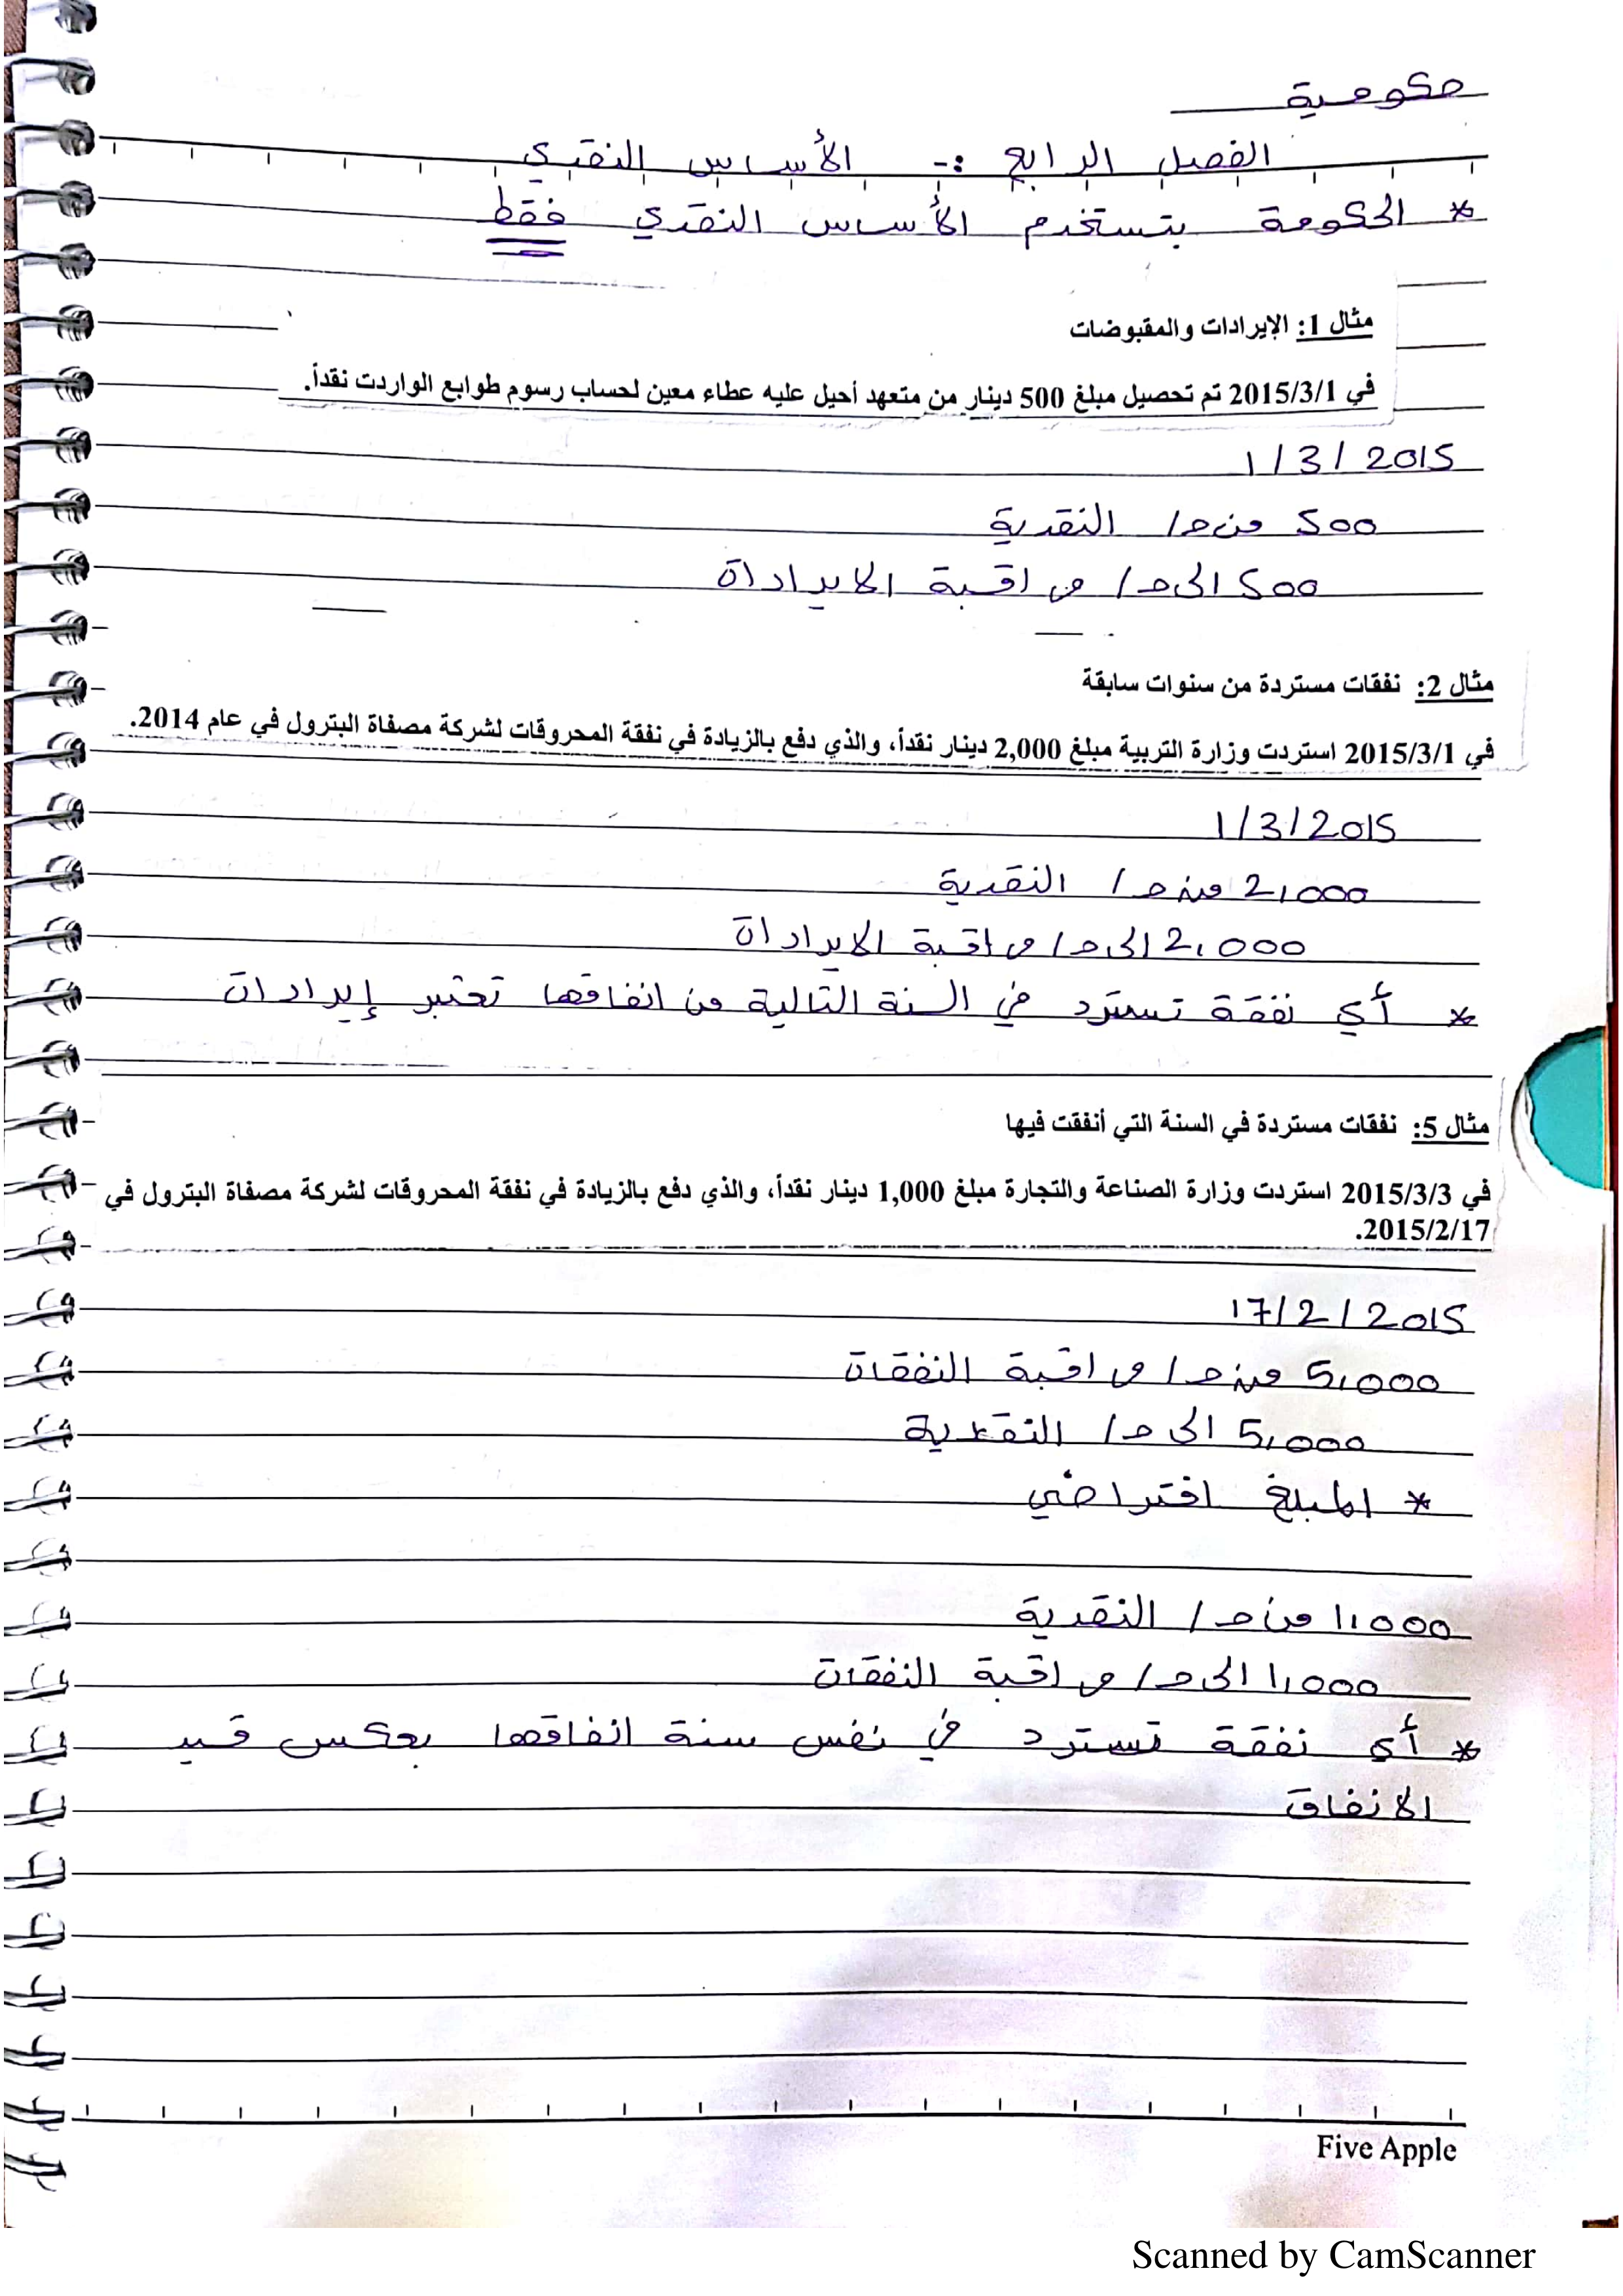 حكومية
الفصل الرابع :- الأساس النقدي
* الحكومة بتستخدم الأساس النقدي فقط
مثال 1: الإيرادات والمقبوضات
في 2015/3/1 تم تحصيل مبلغ 500 دينار من متعهد أحيل عليه عطاء معين لحساب رسوم طوابع الواردت نقداً.
1/3/2015
500 من حـ/ النقدية
500 الى حـ/ مراقبة الايرادات
مثال 2: نفقات مستردة من سنوات سابقة
في 2015/3/1 استردت وزارة التربية مبلغ 2,000 دينار نقداً، والذي دفع بالزيادة في نفقة المحروقات لشركة مصفاة البترول في عام 2014.
1/3/2015
2,000 من حـ/ النقدية
2,000 الى حـ/ مراقبة الايرادات
* أي نفقة تسترد في السنة التالية من انفاقها تعتبر إيرادات
مثال 5: نفقات مستردة في السنة التي أنفقت فيها
في 2015/3/3 استردت وزارة الصناعة والتجارة مبلغ 1,000 دينار نقداً، والذي دفع بالزيادة في نفقة المحروقات لشركة مصفاة البترول في
2015/2/17.
17/2/2015
5,000 من حـ/ مراقبة النفقات
5,000 الى حـ/ النقدية
* المبلغ افتراضي
1,000 من حـ/ النقدية
1,000 الى حـ/ مراقبة النفقات
* أي نفقة تسترد في نفس سنة انفاقها بعكس قيد
الانفاق
Five Apple
Scanned by CamScanner